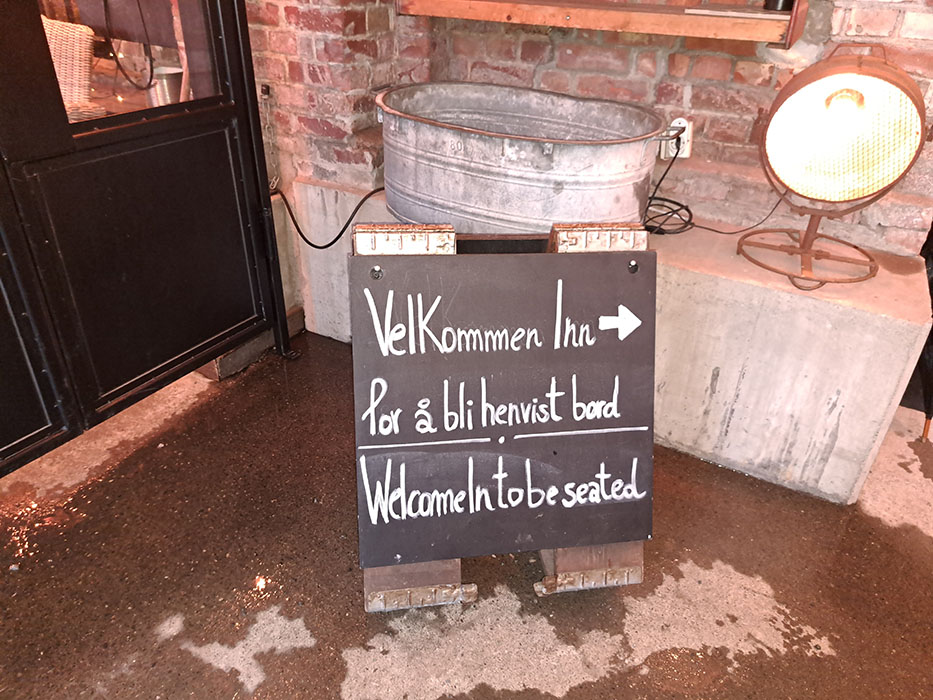 Velkommen Inn →
for å bli henvist bord
Welcome In to be seated